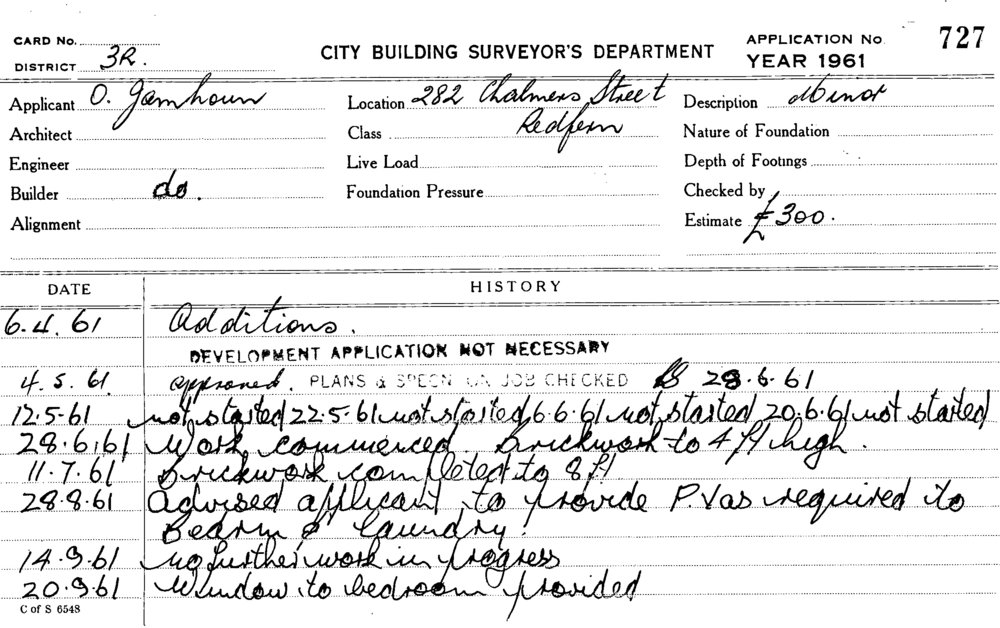 CARD No.
DISTRICT 3R.
CITY BUILDING SURVEYOR'S DEPARTMENT
APPLICATION No. 727
YEAR 1961
Applicant O. Jamhoun
Location 282 Chalmers Street
Redfern
Description Minor
Architect
Class
Nature of Foundation
Engineer
Live Load
Depth of Footings
Builder do.
Foundation Pressure
Checked by
Alignment
Estimate £300.
DATE HISTORY
6.4.61 Additions.
DEVELOPMENT APPLICATION NOT NECESSARY
4.5.61 approved. PLANS & SPECN ON JOB CHECKED 28.6.61
12.5.61 not started 22.5.61 not started 6.6.61 not started 20.6.61 not started
28.6.61 Work commenced brickwork to 4 ft high.
11.7.61 Brickwork completed to 8 ft
28.8.61 Advised applicant to provide P.Vas required to
Bedrm & laundry.
14.9.61 no further work in progress
20.9.61 Window to bedroom provided
C of S 6548